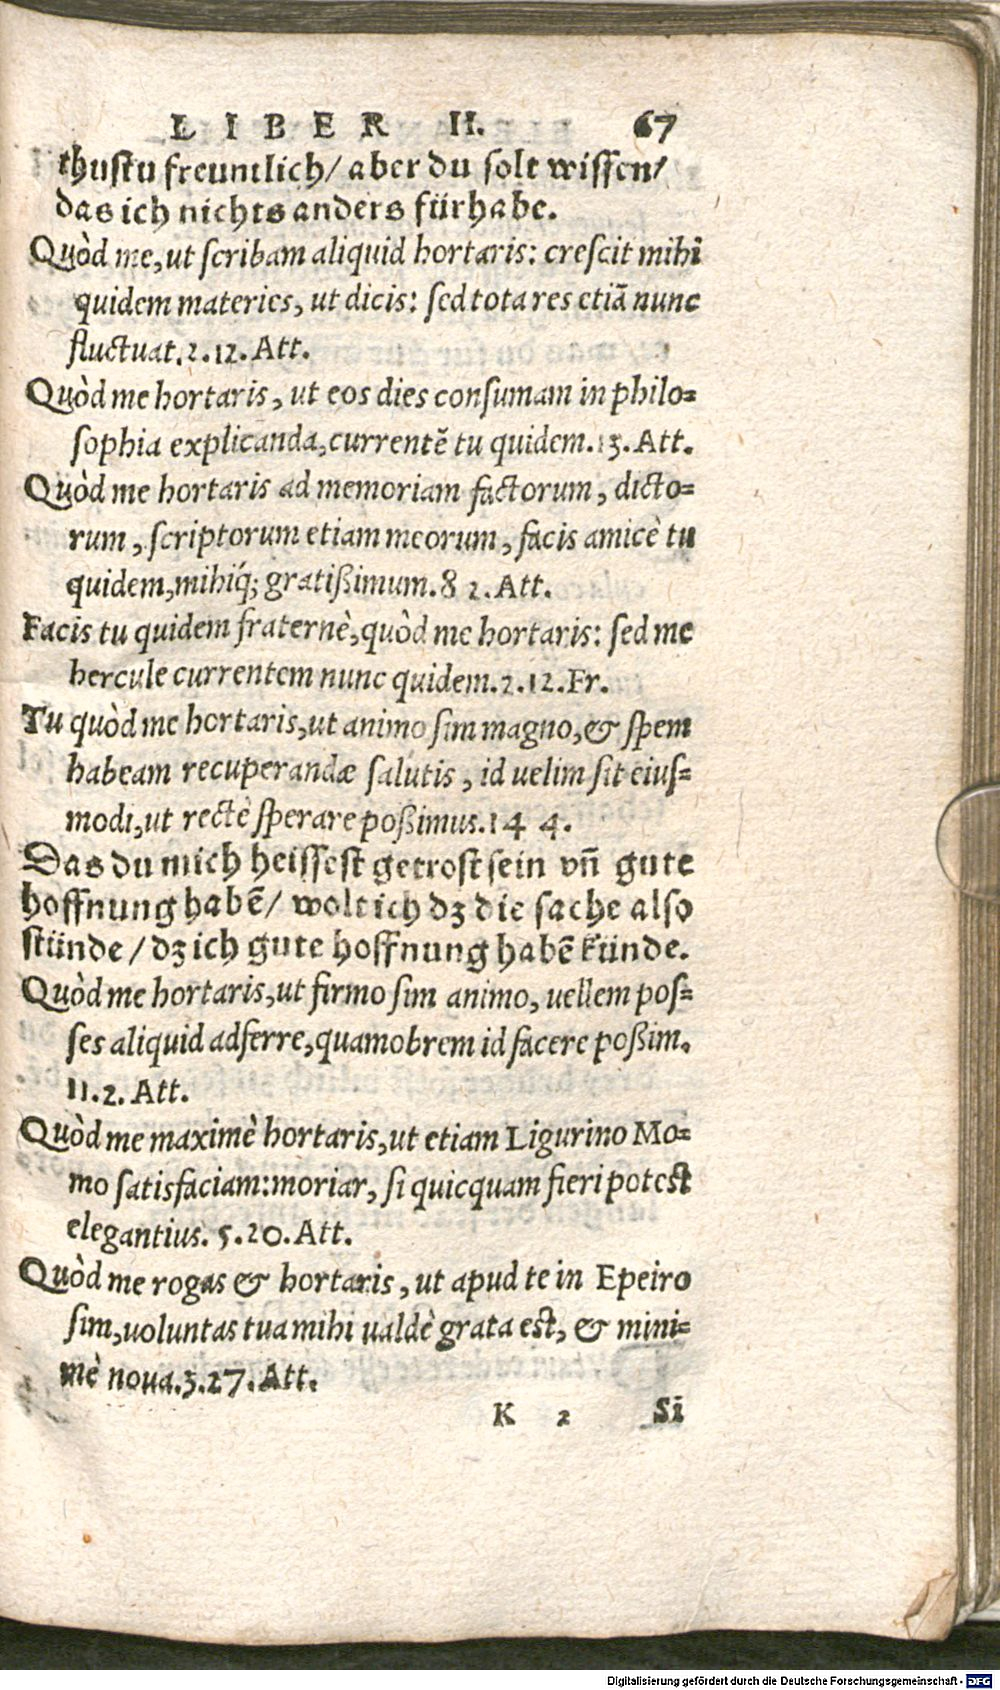 LIBER II. 67
thustu freuntlich/ aber du solt wissen/
das ich nichts anders fürhabe.
Quòd me, ut scribam aliquid hortaris: crescit mihi
quidem materies, ut dicis: sed tota res etiā nunc
fluctuat. 2. 12. Att.
Quòd me hortaris, ut eos dies consumam in philo-
sophia explicanda, currentē tu quidem. 13. Att.
Quòd me hortaris ad memoriam factorum, dicto-
rum, scriptorum etiam meorum, facis amicè tu
quidem, mihiq́; gratißimum. 8 2. Att.
Facis tu quidem fraternè, quòd me hortaris: sed me
hercule currentem nunc quidem. 2. 12. Fr.
Tu quòd me hortaris, ut animo sim magno, & spem
habeam recuperandæ salutis, id uelim sit eius-
modi, ut rectè sperare poßimus. 14 4.
Das du mich heissest getrost sein vñ gute
hoffnung habē/ wolt ich dz die sache also
stünde/ dz ich gute hoffnung habē künde.
Quòd me hortaris, ut firmo sim animo, uellem pos-
ses aliquid adferre, quamobrem id facere poßim.
11. 2. Att.
Quòd me maximè hortaris, ut etiam Ligurino Mo-
mo satisfaciam: moriar, si quicquam fieri potest
elegantius. 5. 20. Att.
Quòd me rogas & hortaris, ut apud te in Epeiro
sim, uoluntas tua mihi ualdè grata est, & mini-
mè noua. 3. 27. Att.
K 2 Si
Digitalisierung gefördert durch die Deutsche Forschungsgemeinschaft - DFG